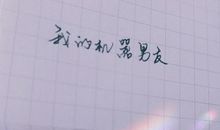 我的机器男友